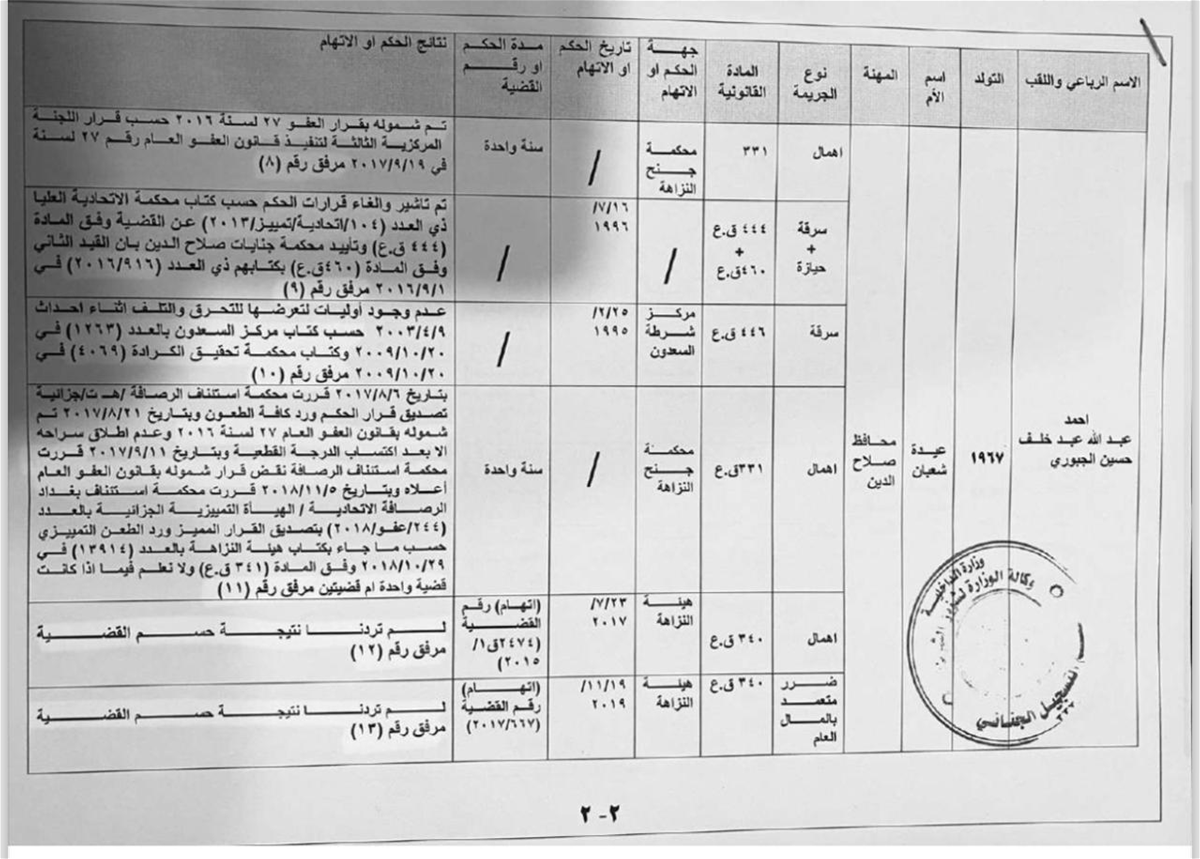 الاسم الرباعي واللقب
التولد
اسم
الأم
المهنة
نوع
الجريمة
المادة
القانونية
جهـــة
الحكم او
الاتهام
تاريخ الحكم
او الاتهام
مـدة الحكم
او رقـــم
القضية
نتائج الحكم او الاتهام
احمد
عبد الله عبد خلف
حسين الجبوري
١٩٦٧
عيدة
شعبان
محافظ
صلاح
الدين
اهمال
٣٣١
محكمة
جنح
النزاهة
/
سنة واحدة
تم شموله بقرار العفو ٢٧ لسنة ٢٠١٦ حسب قرار اللجنة
المركزية الثالثة لتنفيذ قانون العفو العام رقم ٢٧ لسنة
في ٢٠١٧/٩/١٩ مرفق رقم (٨)
سرقة
+
حيازة
٤٤٤ ق.ع
+
٤٦٠ق.ع
/
/٧/١٦
١٩٩٦
/
تم تاشير والغاء قرارات الحكم حسب كتاب محكمة الاتحادية العليا
ذي العدد (١٠٤/اتحادية/تمييز/٢٠١٣) عن القضية وفق المادة
(٤٤٤ ق.ع) وتأييد محكمة جنايات صلاح الدين بان القيد الثاني
وفق المادة (٤٦٠ق.ع) بكتابهم ذي العدد (٢٠١٦/٩١٦) في
٢٠١٦/٩/١ مرفق رقم (٩)
سرقة
٤٤٦ ق.ع
مركـز
شرطة
السعدون
/٢/٢٥
١٩٩٥
/
عدم وجود أوليات لتعرضها للتحرق والتلف اثناء احداث
٢٠٠٣/٤/٩ حسب كتاب مركز السعدون بالعدد (١٢٦٣) في
٢٠٠٩/١٠/٢٠ وكتاب محكمة تحقيق الكرادة (٤٠٦٩) في
٢٠٠٩/١٠/٢٠ مرفق رقم (١٠)
اهمال
٣٣١ق.ع
محكمة
جنح
النزاهة
/
سنة واحدة
بتاريخ ٢٠١٧/٨/٦ قررت محكمة استئناف الرصافة /هـ ت/جزائية
تصديق قرار الحكم ورد كافة الطعون وبتاريخ ٢٠١٧/٨/٢١ تم
شموله بقانون العفو العام ٢٧ لسنة ٢٠١٦ وعدم اطلاق سراحه
الا بعد اكتساب الدرجة القطعية وبتاريخ ٢٠١٧/٩/١١ قررت
محكمة استئناف الرصافة نقض قرار شموله بقانون العفو العام
أعلاه وبتاريخ ٢٠١٨/١١/٥ قررت محكمة استئناف بغداد
الرصافة الاتحادية / الهيأة التمييزية الجزائية بالعدد
(٢٤٤/عفو/٢٠١٨) بتصديق القرار المميز ورد الطعن التمييزي
حسب ما جاء بكتاب هيئة النزاهة بالعدد (١٣٩١٤) في
٢٠١٨/١٠/٢٩ وفق المادة (٣٤١ ق.ع) ولا تعلم فيما اذا كانت
قضية واحدة ام قضيتين مرفق رقم (١١)
اهمال
٣٤٠ ق.ع
هيئـــة
النزاهة
/٧/٢٣
٢٠١٧
(اتهام) رقم
القضية
(٢٤٧٤ق١/
٢٠١٥)
لـــم تردنـــا نتيجـــة حســـم القضيـــة
مرفق رقم (١٢)
ضـــرر
متعمـد
بالمـال
العام
٣٤٠ ق.ع
هيئـــة
النزاهة
/١١/١٩
٢٠١٩
(اتهـــام)
رقم القضية
(٢٠١٧/٦٦٧)
لـــم تردنـــا نتيجـــة حســـم القضيـــة
مرفق رقم (١٣)
وزارة الداخلية
وكالة الوزارة لشؤون الشرطة
التسجيل الجنائي
٢-٢